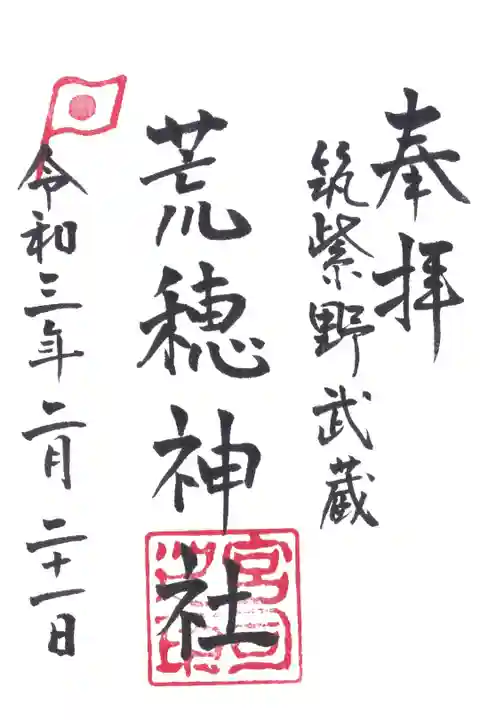 奉拝
筑紫野武蔵
荒穂神社
令和三年二月二十一日
宮司之印